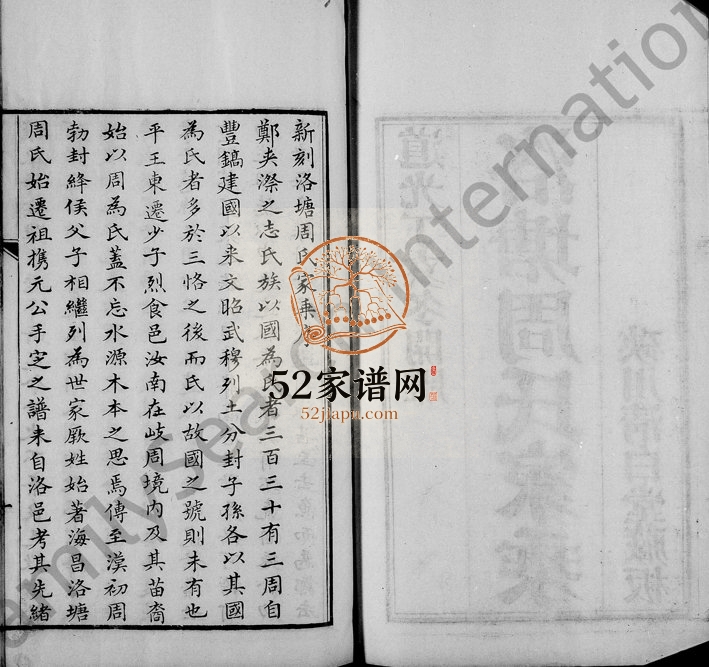 新刻洛塘周氏家乗序
鄭夾漈之志氏族以國為氏者三百三十有三周自
豐鎬建國以来文昭武穆列土分封子孫各以其國
為氏者多於三恪之後而氏以故國之號則未有也
平王東遷少子烈食邑汝南在岐周境内及其苗裔
始以周為氏蓋不忘水源木本之思焉傳至漢初周
勃封絳侯父子相繼列為世家厥姓始著海昌洛塘
周氏始遷祖攜元公手定之譜来自洛邑考其先緒
52家谱网
52jiapu.com